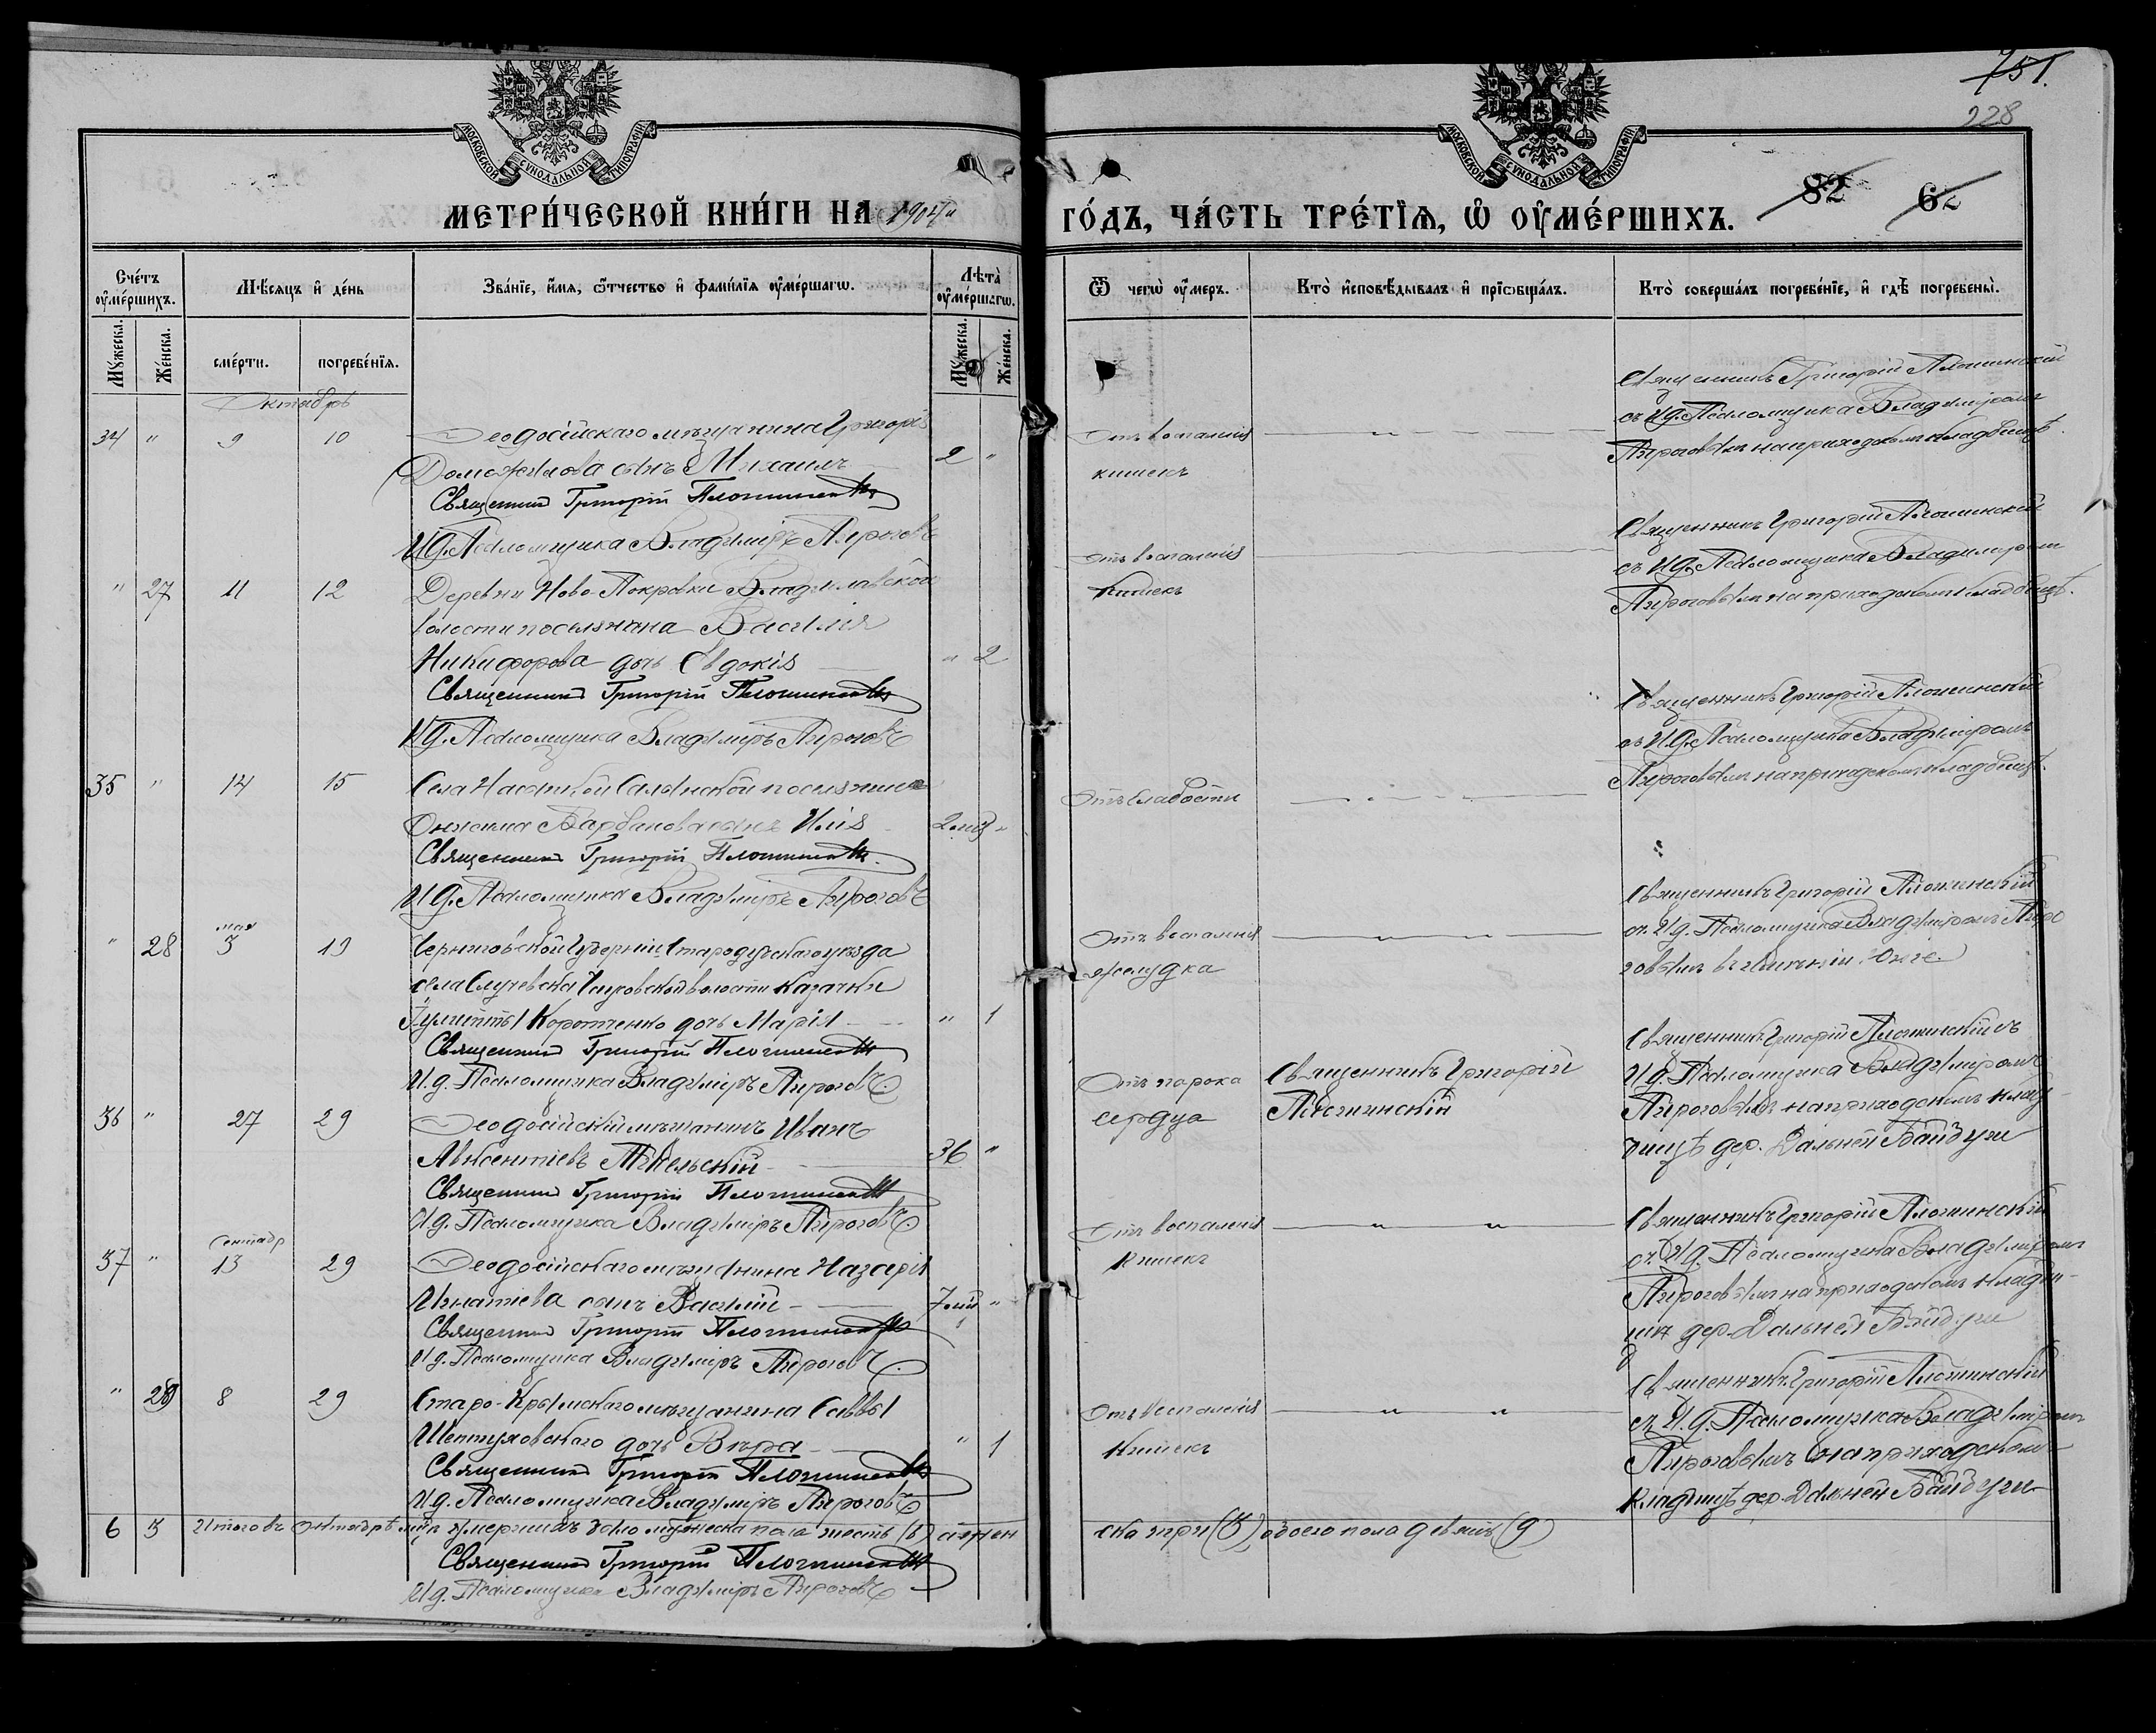 751.
228
МОСКОВСКОЙ СУНОДАЛЬНОЙ ТИПОГРАФІИ
МОСКОВСКОЙ СУНОДАЛЬНОЙ ТИПОГРАФІИ
82 62
МЕТРИ́ЧЕСКОЙ КНИ́ГИ НА 1904й
ГО́ДЪ, ЧА́СТЬ ТРЕ́ТІѦ, Ѡ ОУ҆МЕ́РШИХЪ.
Сче́тъ оу҆ме́ршихъ.
Мѣ́сяцъ и҆ де́нь
Зва́нїе, и҆́мя, ѻ҆́тчество и҆ фами́лїя оу҆ме́ршагѡ.
Лѣта̀ оу҆ме́ршагѡ.
Ѿ чегѡ̀ оу҆́меръ.
Кто̀ и҆сповѣ́дывалъ и҆ прїѡбща́лъ.
Кто̀ соверша́лъ погребе́нїе, и҆ гдѣ̀ погребены̀.
Мꙋ́жеска.
Же́нска.
сме́рти.
погребе́нїя.
Мꙋ́жеска.
Же́нска.
Октябрь
34 " 9 10 Ѳеодосійскаго мѣщанина Григорія
Доможилова сынъ Михаилъ 2 "
Священникъ Григорій Плотинскій
И.д. Псаломщика Владиміръ Пироговъ
Отъ воспаленія
кишекъ
Священникъ Григорій Плотинскій
съ И.д. Псаломщика Владиміромъ
Пироговымъ на приходскомъ кладбищѣ.
" 27 11 12 Деревни Ново-Покровки Владиславской
волости поселянина Василія
Никифорова дочь Евдокія " 2
Священникъ Григорій Плотинскій
И.д. Псаломщика Владиміръ Пироговъ
Отъ воспаленія
кишекъ
Священникъ Григорій Плотинскій
съ И.д. Псаломщика Владиміромъ
Пироговымъ на приходскомъ кладбищѣ.
35 " 14 15 Села Насыпкой Салынской поселянина
сынъ Илія 2 мц. "
Священникъ Григорій Плотинскій
И.д. Псаломщика Владиміръ Пироговъ
Отъ слабости
Священникъ Григорій Плотинскій
съ И.д. Псаломщика Владиміромъ
Пироговымъ на приходскомъ кладбищѣ.
мая
" 28 3 19 Черниговской губерніи Стародубскаго уѣзда
села Случевска волости казачки
Коротченко дочь Марія " 1
Священникъ Григорій Плотинскій
И.д. Псаломщика Владиміръ Пироговъ
Отъ воспаленія
желудка
Священникъ Григорій Плотинскій
съ И.д. Псаломщика Владиміромъ Пиро
говымъ въ имѣніи
36 " 27 29 Ѳеодосійскій мѣщанинъ Иванъ
Авксентіевъ 36 "
Священникъ Григорій Плотинскій
И.д. Псаломщика Владиміръ Пироговъ
Отъ порока
сердца
Священникъ Григорій
Плотинскій
Священникъ Григорій Плотинскій съ
И.д. Псаломщика Владиміромъ
Пироговымъ на приходскомъ клад
бищѣ дер. Дальней Байбуги
сентябр
37 " 13 29 Ѳеодосійскаго мѣщанина Назарія
Игнатіева сынъ Василій 7 мц. "
Священникъ Григорій Плотинскій
И.д. Псаломщика Владиміръ Пироговъ
Отъ воспаленія
кишекъ
Священникъ Григорій Плотинскій
съ И.д. Псаломщика Владиміромъ
Пироговымъ на приходскомъ кладби-
щѣ дер. Дальней Байбуги
" 29 8 29 Старо-Крымскаго мѣщанина Саввы
Шептуховскаго дочь Вѣра " 1
Священникъ Григорій Плотинскій
И.д. Псаломщика Владиміръ Пироговъ
Отъ воспаленія
кишекъ
Священникъ Григорій Плотинскій
съ И.д. Псаломщика Владиміромъ
Пироговымъ на приходскомъ
кладбищѣ дер. Дальней Байбуги
6 3 Итого въ Октябрѣ мцѣ умершихъ было мужеска пола шесть (6) а жен
ска три (3), обоего пола девять (9)
Священникъ Григорій Плотинскій
И.д. Псаломщика Владиміръ Пироговъ